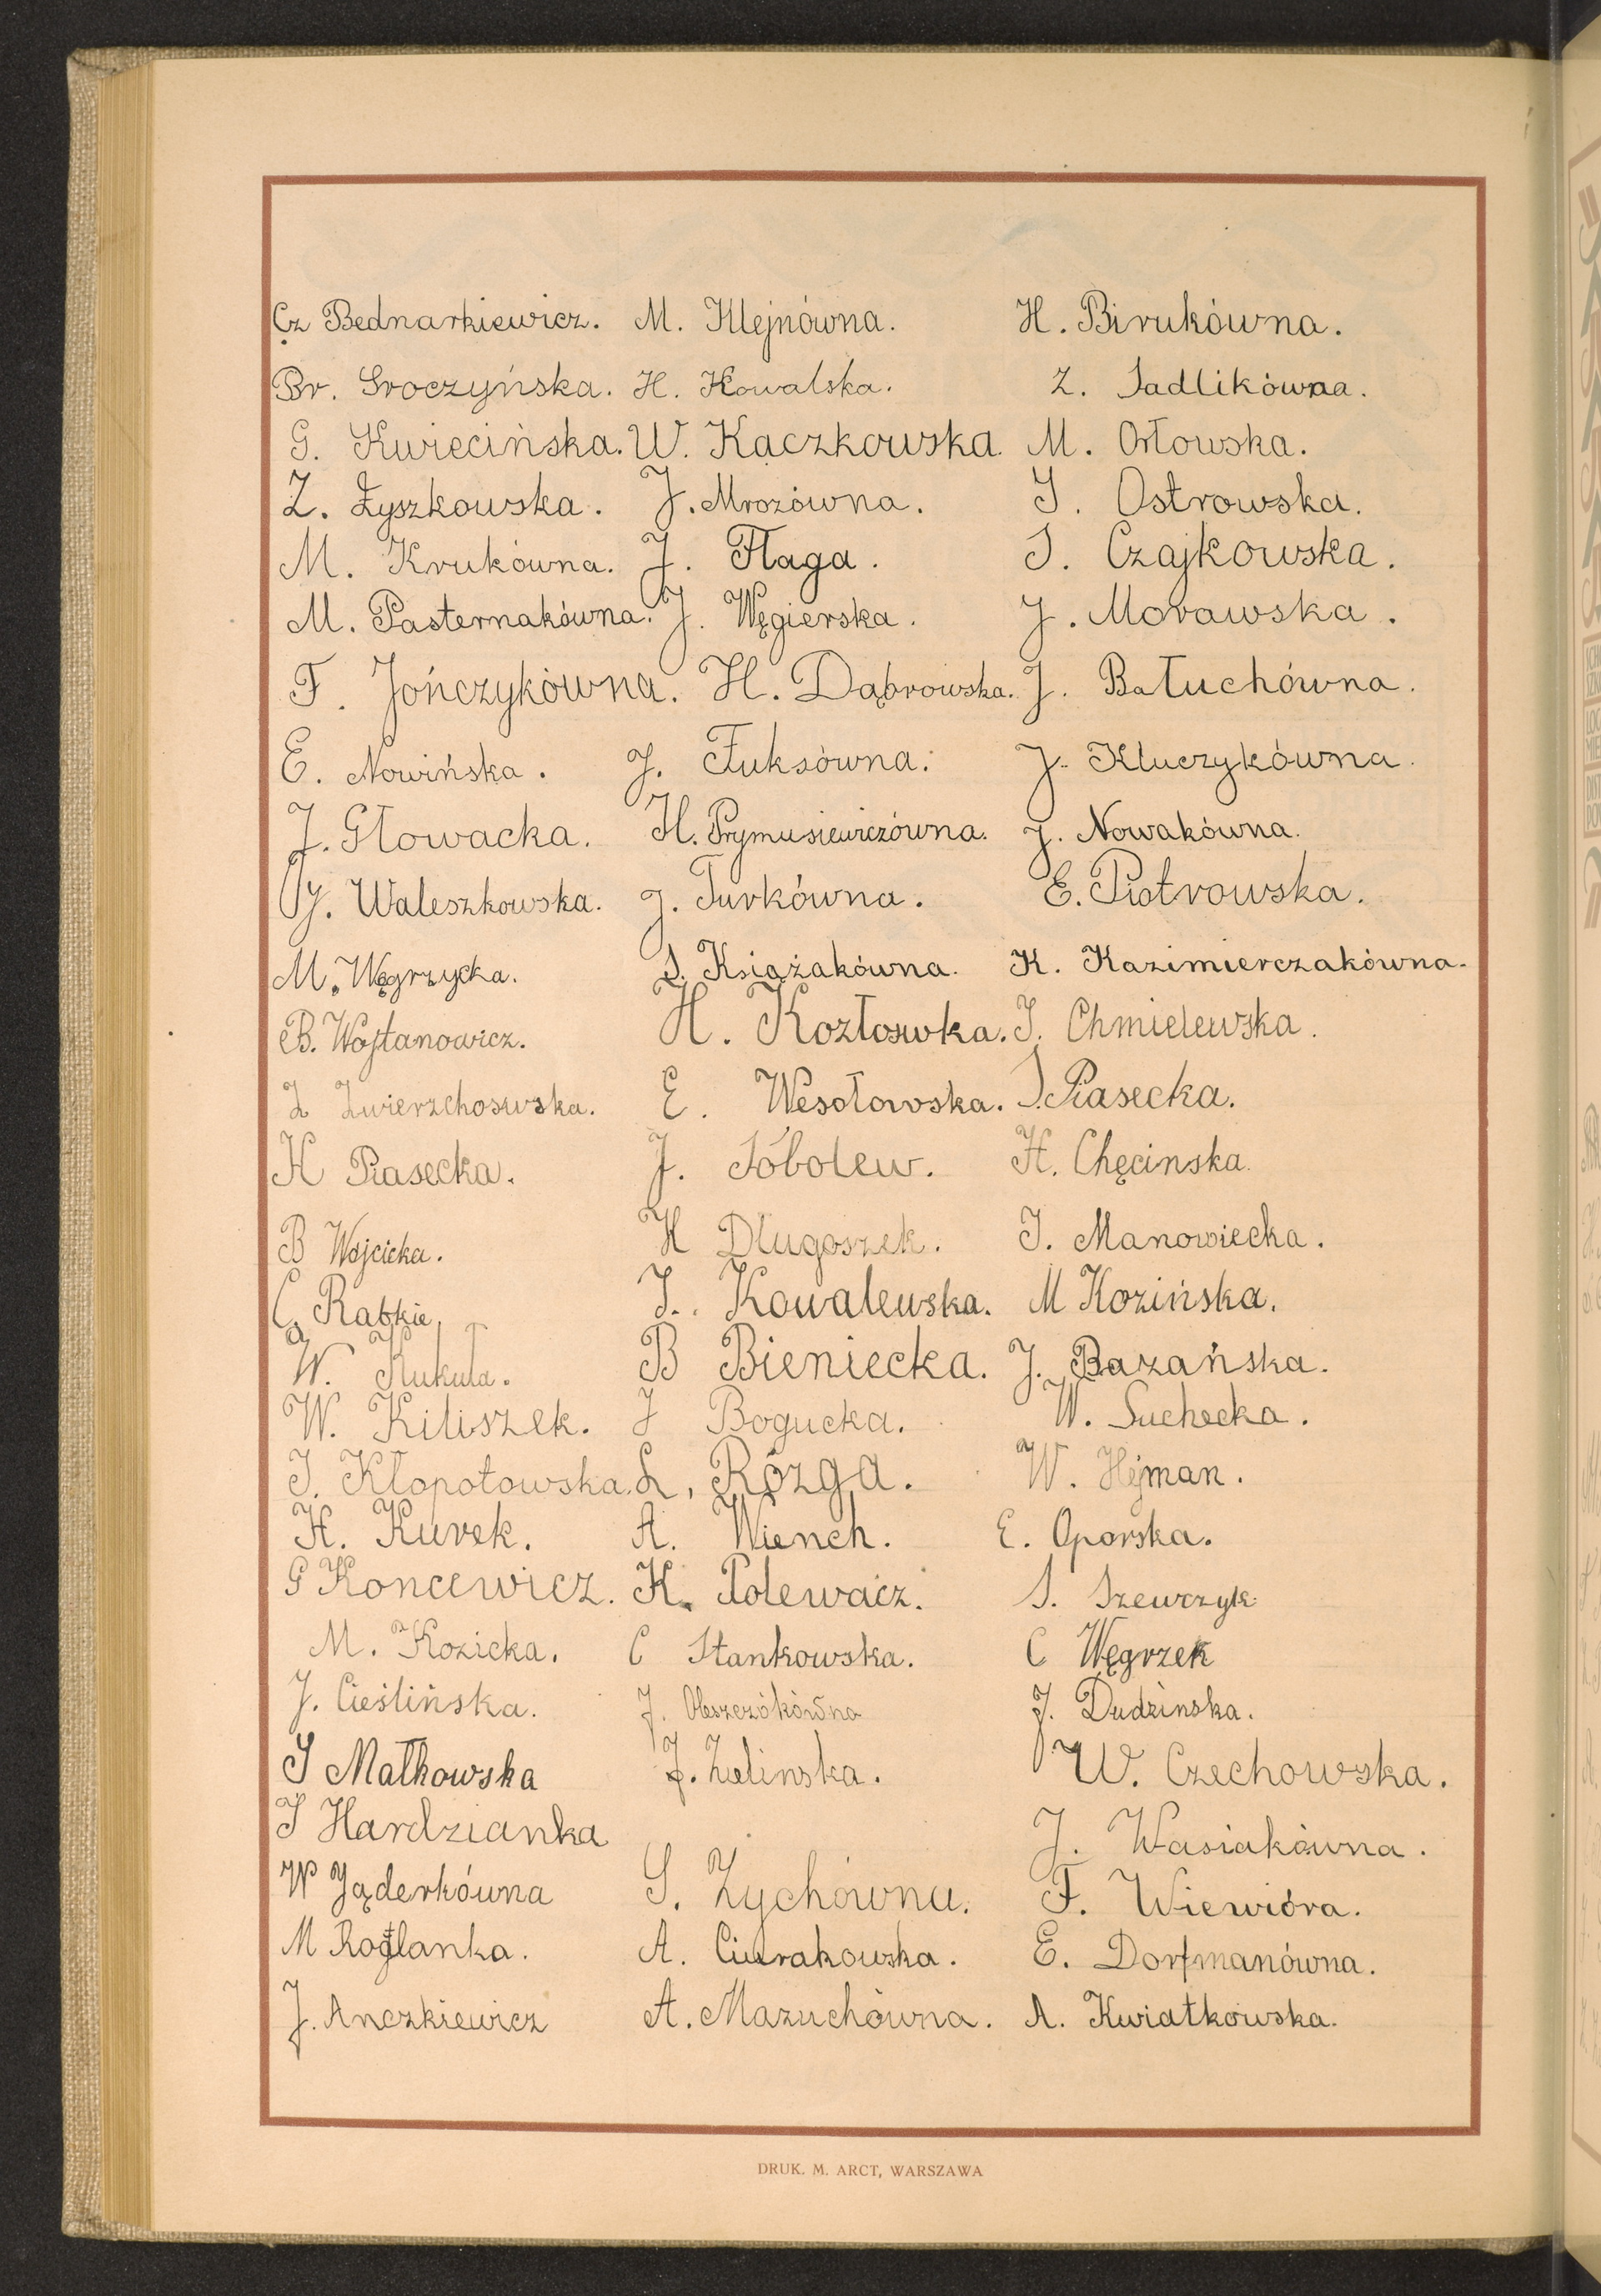 Cz Bednarkiewicz. M. Klejnówna. H. Birukówna.
Br. Groczyńska. H. Kowalska. Z. Sadlikówna.
G. Kwiecińska. W. Kączkowska. M. Orłowska.
Z. Łyszkowska. J. Mrozówna. I. Ostrowska.
M. Krukówna. J. Flaga. S. Czajkowska.
M. Pasternakówna. J. Węgierska. J. Morawska.
F. Jończykówna. H. Dąbrowska. J. Bałuchówna.
E. Nowińska. J. Fuksówna. J. Kluczykówna.
J. Głowacka. H. Prymusiewiczówna. J. Nowakówna.
J. Waleszkowska. J. Turkówna. E. Piotrowska.
M. Węgrzycka. S. Książakówna. K. Kazimierczakówna.
B. Wojtanowicz. H. Kozłoswka. I. Chmielewska.
Z Zwierzchoswska. E. Wesołowska. S. Piasecka.
K Piasecka. J. Sóbolew. H. Chęcinska.
B Wojcicka. K Długoszek. I. Manowiecka.
C. Rabkie I. Kowalewska. M Kozińska.
W. Kukuła. B Bieniecka. J. Bazańska.
W. Kiliszek. J Bogucka. W. Suchecka.
I. Kłopotowska. L, Rózga. W. Hejman.
H. Kurek. A. Wiench. E. Oporska.
G Koncewicz. K. Polewacz. S. Szewczyk
M. Kozicka. C Stankowska. C Węgrzek
J. Cieślińska. J. J. Dudzinska.
I Małkowska J. Zielinska. W. Czechowska.
I Hardzianka J. Wasiakówna.
W Jąderkówna S. Zychówna. F. Wiewióra.
M A. E. Dorfmanówna.
J. Anczkiewicz A. Mazuchówna. A. Kwiatkowska.
DRUK. M. ARCT, WARSZAWA